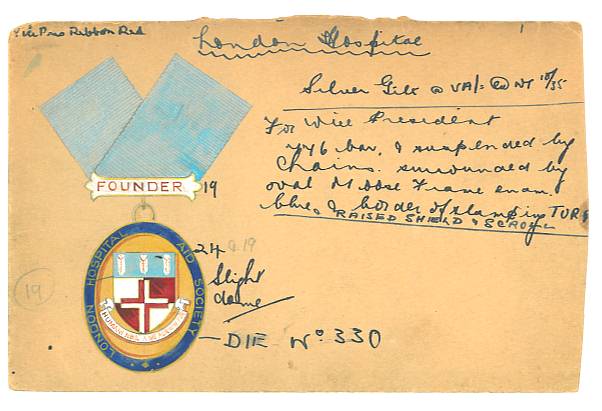 Vice Pres Ribbon Red
London Hospital
Silver Gilt @ 10/35
For Vice President
776 bar, & suspended by
Chains. surrounded by
oval frame enam
blue, & border of stamping
RAISED SHIELD & SCROLL
FOUNDER 19
LONDON HOSPITAL AID SOCIETY
24 @ 19
Slight
dome
19
DIE No 330